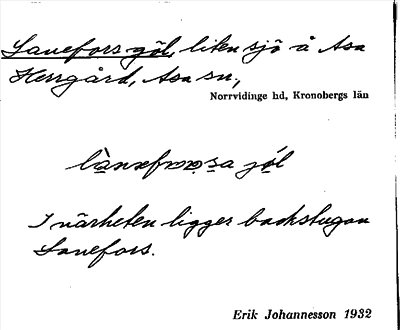 Lanefors göl, liten sjö å Asa
Herrgård, Asa sn,
Norrvidinge hd, Kronobergs län
I närheten ligger backstugan
Lanefors.
Erik Johannesson 1932